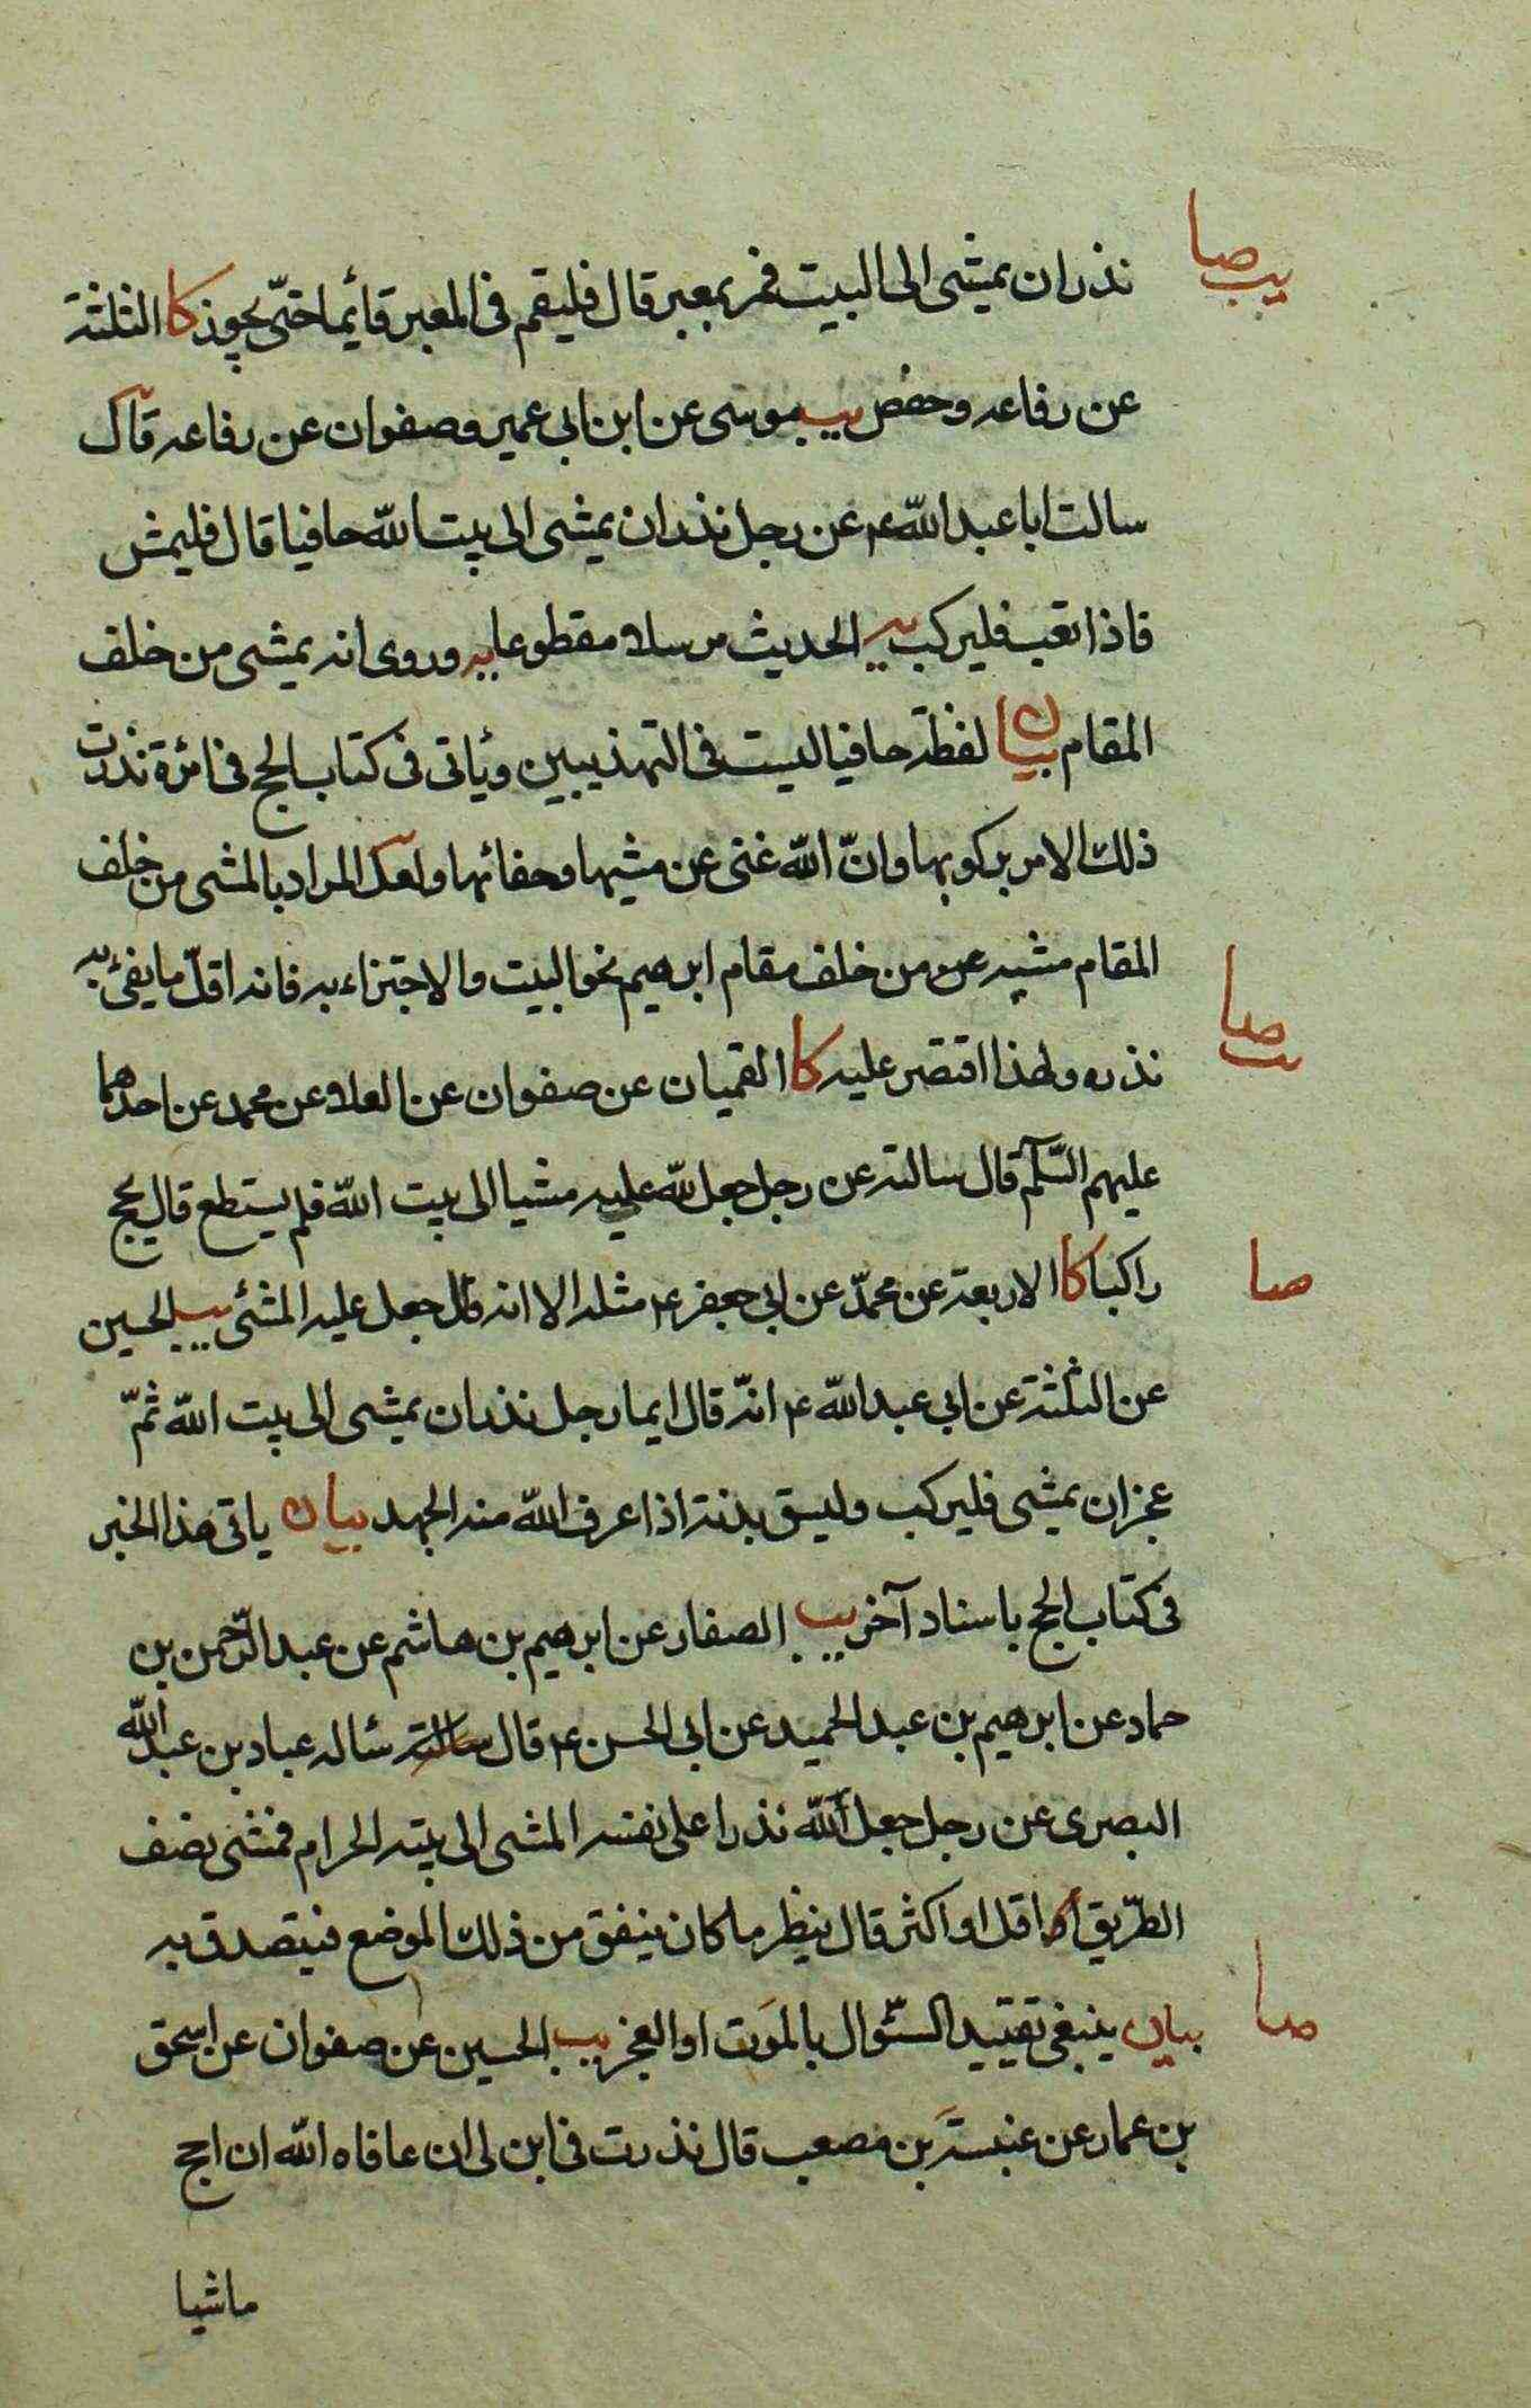 يب صا
نذر ان يمشى الى البيت فمر بمعبر قال فليقم فى المعبر قائما حتّى يجوز كا الثلثة
عن رفاعه وحفص يب موسى عن ابن ابى عمير وصفوان عن رفاعه قال
سالت ابا عبد الله ع عن رجل نذر ان يمشى الى بيت الله حافيا قال فليمش
فاذا تعب فليركب يه الحديث مرسلا مقطوعا يه وروى انه يمشى من خلف
المقام بيان لفظة حافيا ليست فى التهذيبين وياتى فى كتاب الحج فى امرٔة نذرت
ذلك الامر بركوبها وانّ الله غنى عن مشيها وحفائها ولعل المراد بالمشى من خلف
المقام مشيه من خلف مقام ابرهيم نحو البيت والاجتزاء به فانه اقلّ ما يفئ به
صا
نذره ولهذا اقتصر عليه كا القميان عن صفوان عن العلا عن محمد عن احدهما
عليهم السّلم قال سالته عن رجل جعل لله عليه مشيا الى بيت الله فلم يستطع قال يحج
صا
راكبا كا الاربعة عن محمّد عن ابى جعفر ع مثله الا انه قال جعل عليه المشئ يب الحسين
عن الثلثة عن ابى عبد الله ع انّه قال ايما رجل نذر ان يمشى الى بيت الله ثمّ
عجز ان يمشى فليركب وليسق بدنة اذا عرف الله منه الجهد بيان ياتى هذا الخبر
فى كتاب الحج باسناد آخر يب الصفار عن ابرهيم بن هاشم عن عبد الرّحمن بن
حماد عن ابرهيم بن عبد الحميد عن ابى الحسن ع قال سالته سٔاله عباد بن عبد الله
البصرى عن رجل جعل لله نذرا على نفسه المشى الى بيته الحرام فمشى نصف
الطّريق او اقل او اكثر قال ينظر ما كان ينفق من ذلك الموضع فيتصدق به
صا
بيان ينبغى تقييد السّؤال بالموت او العجز يب الحسين عن صفوان عن اسحق
بن عمار عن عنبسة بن مصعب قال نذرت فى ابن لى ان عافاه الله ان احج
ماشيا